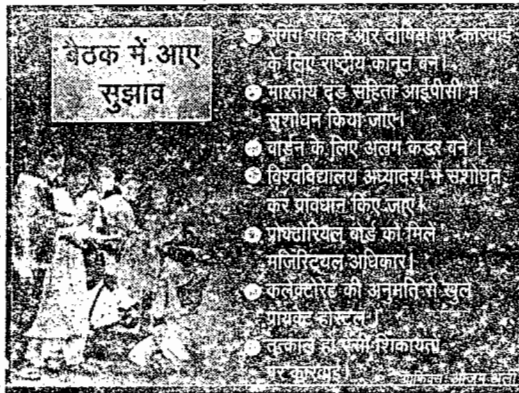 बैठक में आए
सुझाव
रैगिंग रोकने और दोषियों पर कार्रवाई
के लिए राष्ट्रीय कानून बने।
भारतीय दंड संहिता आईपीसी में
संशोधन किया जाए।
वार्डन के लिए अलग कैडर बने।
विश्वविद्यालय अध्यादेश में संशोधन
कर प्रावधान किए जाएं।
प्रोक्टोरियल बोर्ड को मिले
मजिस्ट्रियल अधिकार।
कलेक्टोरेट की अनुमति से खुलें
प्रायवेट होस्टल।
तत्काल हो ऐसी शिकायतों
पर कार्रवाई।
ग्राफिक्स: आजम अली